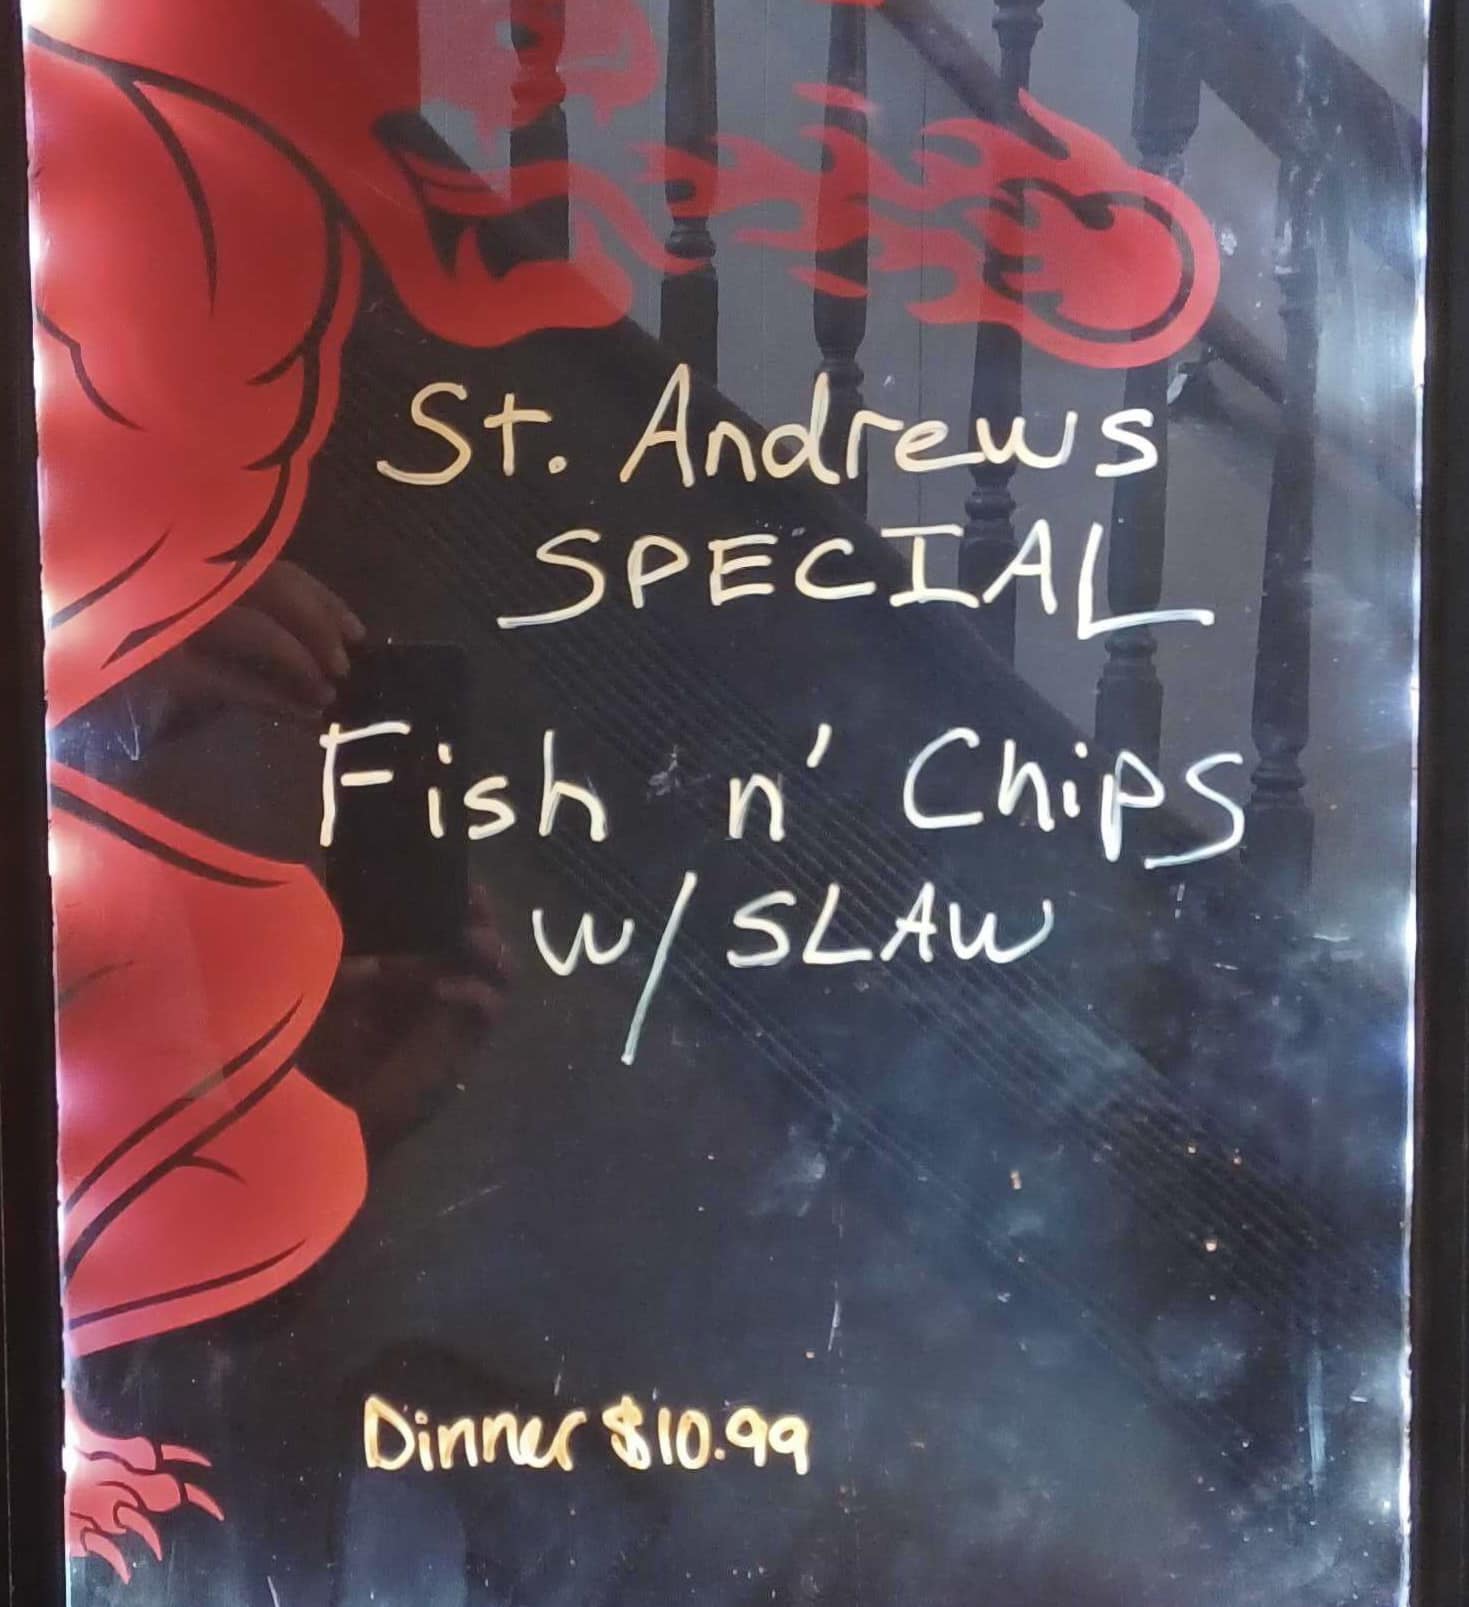 St. Andrews
SPECIAL
Fish n' Chips
w/ SLAW
Dinner $10.99